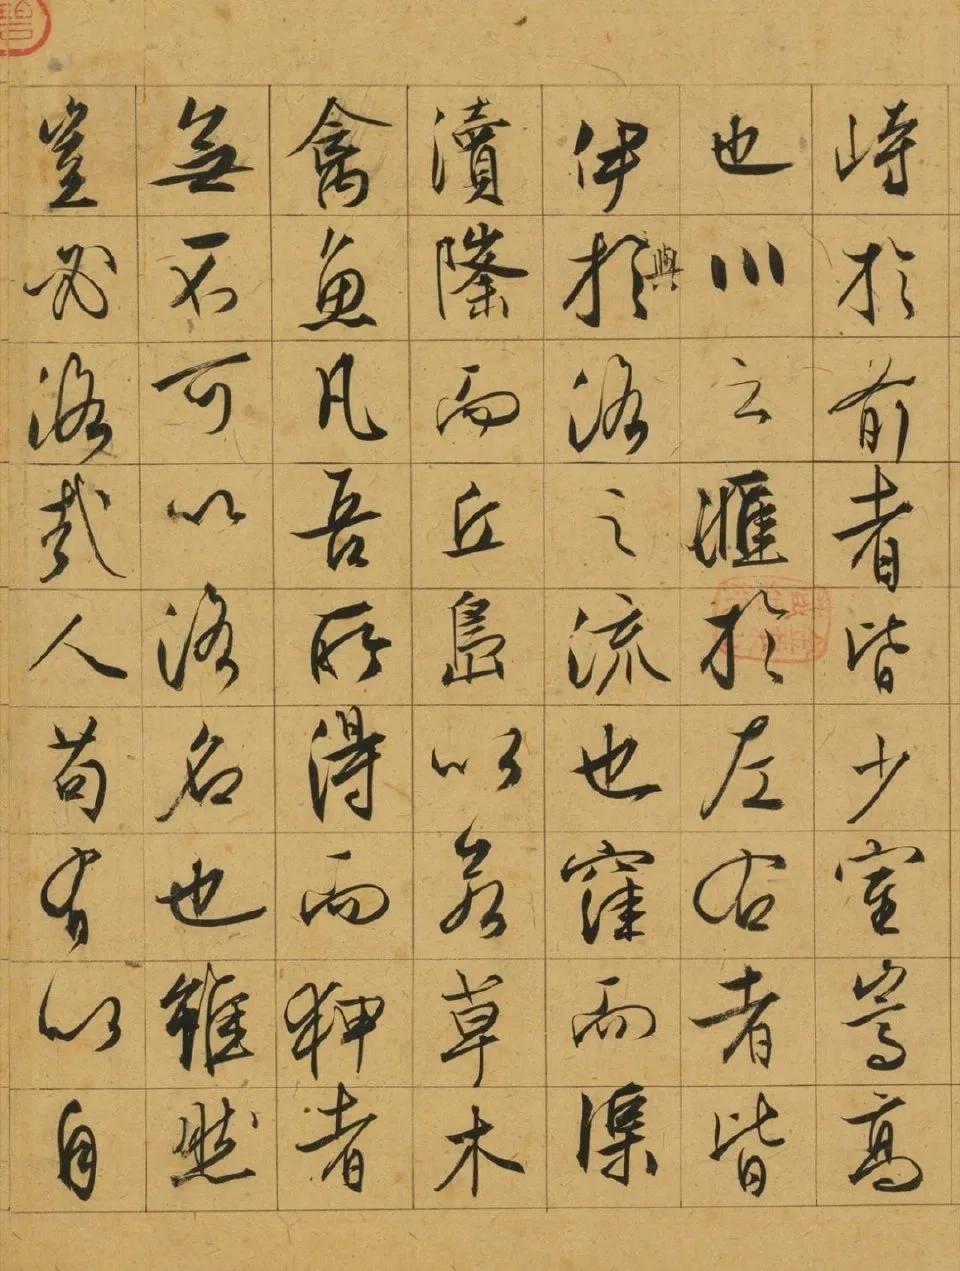 峙於前者皆少室嵩高
也川之滙於左右者皆
伊於與洛之流也窪而渠
瀆隆而丘島以若草木
禽魚凡吾所得而狎者
無不可以洛名也雖然
豈必洛哉人苟有以自